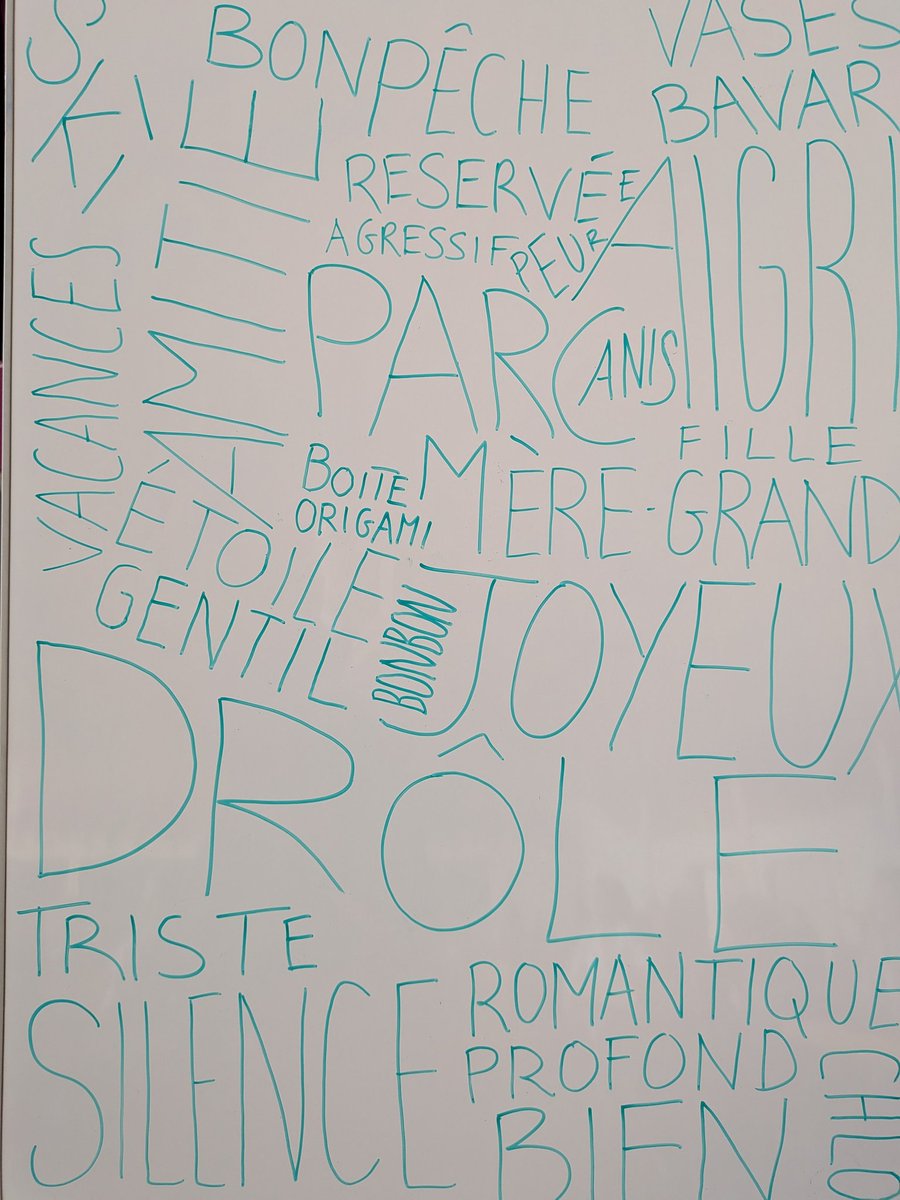 SKI
BON PÊCHE
VASES
BAVAR
AMITIÉ
RESERVÉE
AIGRI
AGRESSIF
PEUR
VACANCES
PARC
ANIS
FILLE
BOITE
ORIGAMI
MÈRE-GRAND
ÉTOILE
GENTIL
BONBON
JOYEUX
DRÔLE
TRISTE
ROMANTIQUE
SILENCE
PROFOND
BIEN
CHLO